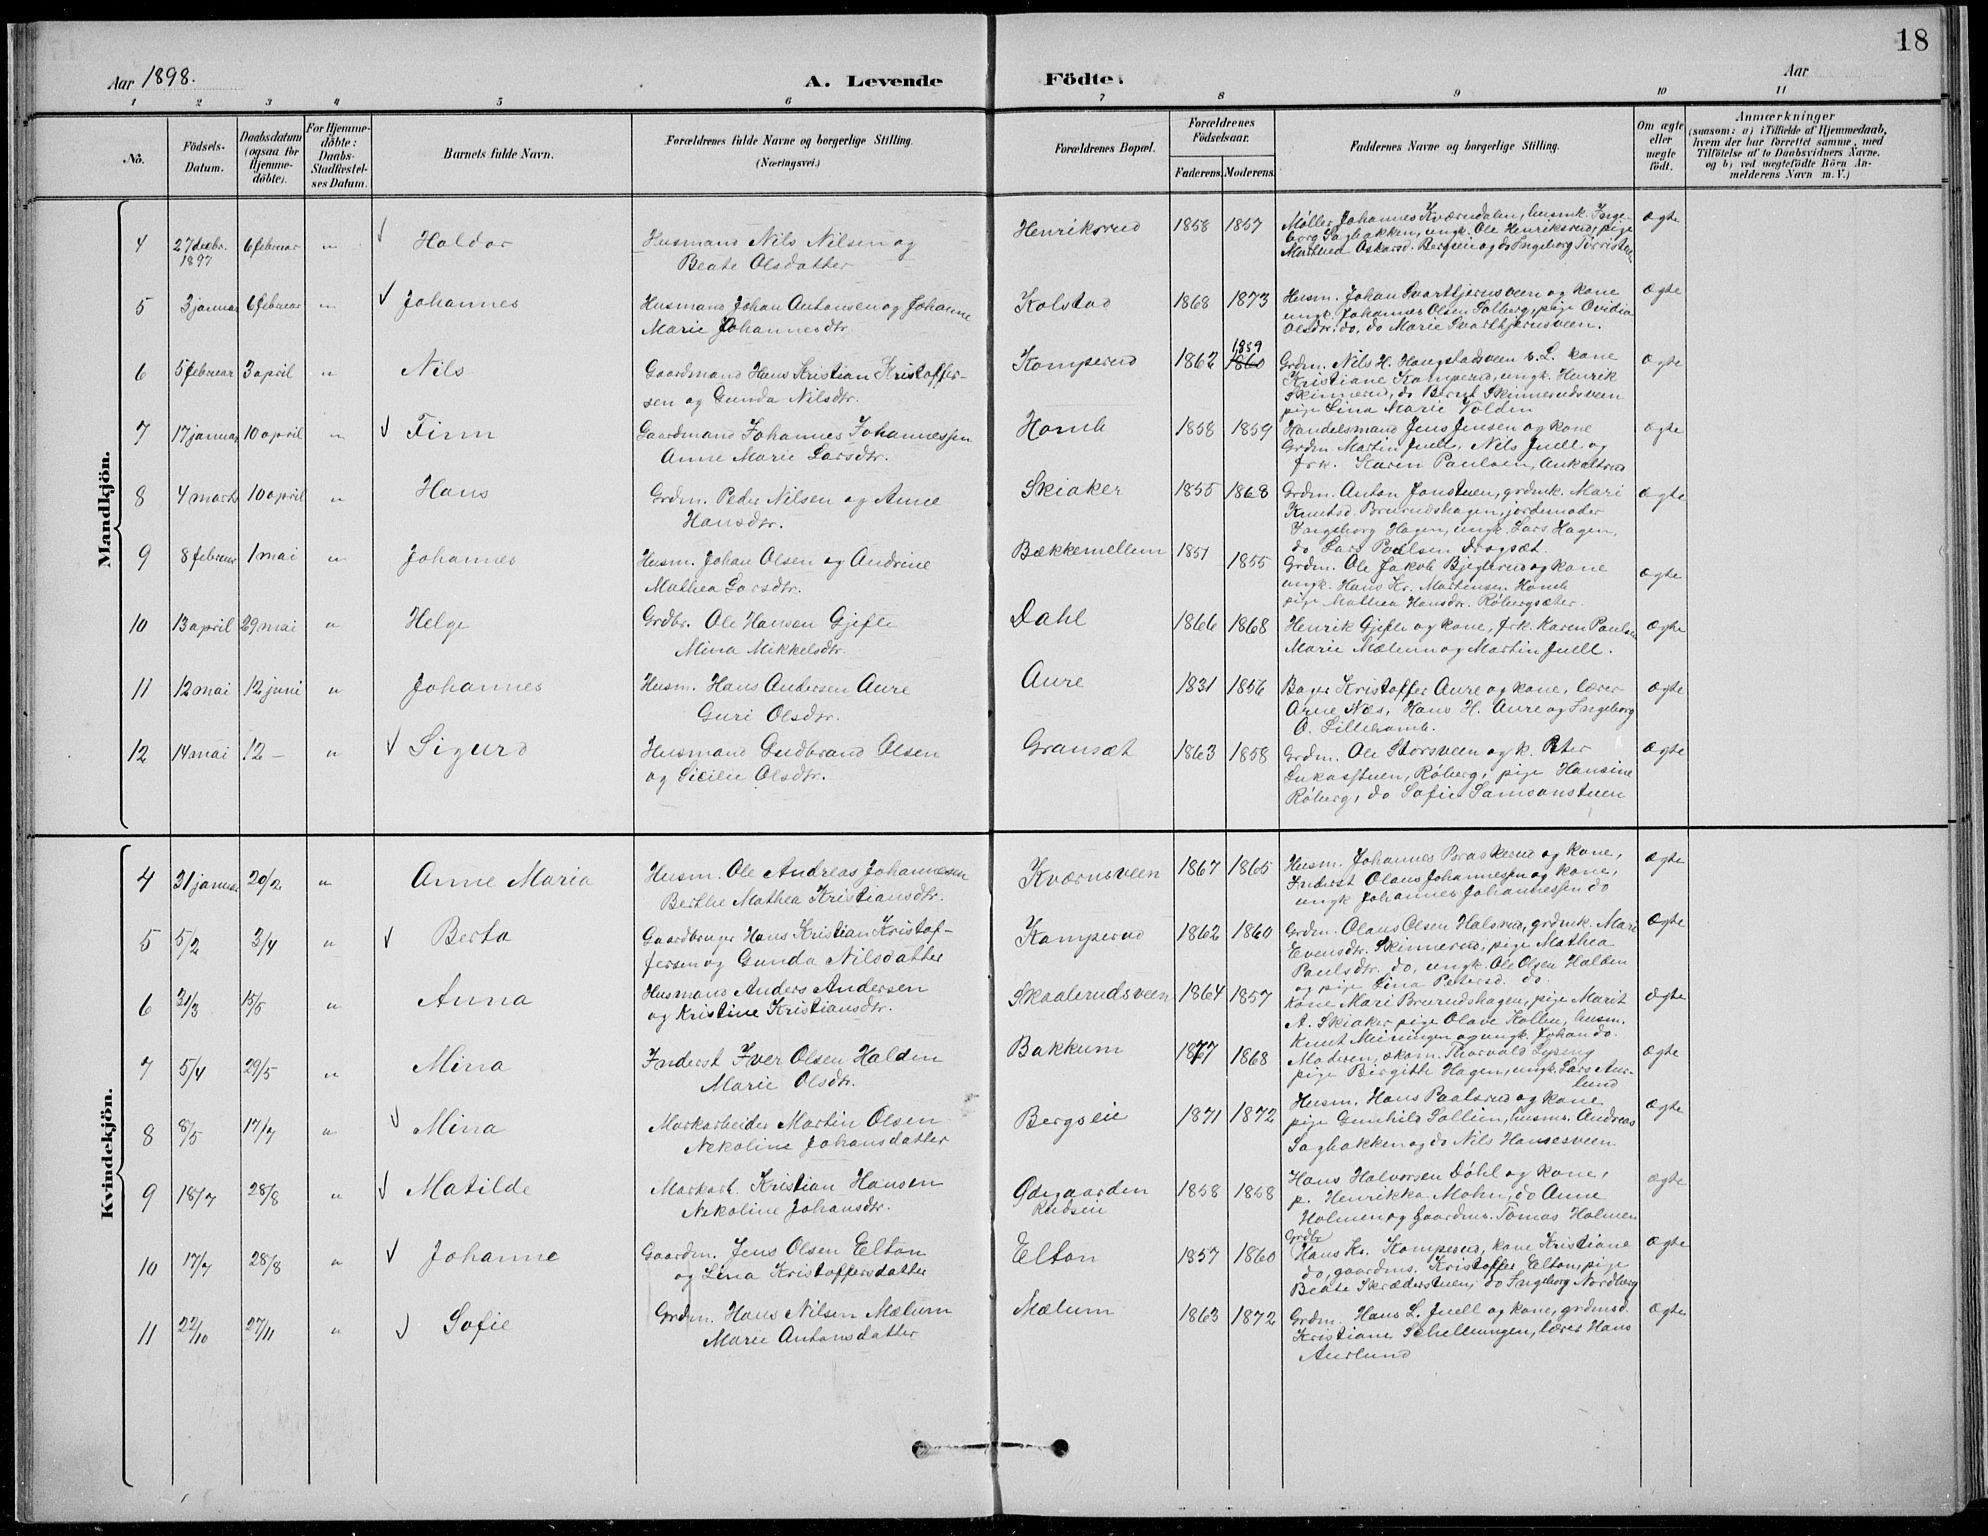 18
Aar 1898.
A. Levende Födte.
Aar
1 2 3 4 5 6 7 8 9 10 11
No.
Födsels-
Datum.
Daabsdatum
(ogsaa for
Hjemme-
döbte).
For Hjemme-
döbte:
Daabs-
Stadfæstel-
ses Datum.
Barnets fulde Navn.
Forældrenes fulde Navne og borgerlige Stilling.
(Næringsvei.)
Forældrenes Bopæl.
Forældrenes
Födselsaar.
Faderens. Moderens.
Faddernes Navne og borgerlige Stilling.
Om ægte
eller
uægte
födt.
Anmærkninger
(saasom: a) i Tilfælde af Hjemmedaab,
hvem der har forrettet samme, med
Tilföielse af to Daabsvidners Navne.
og b) ved uægtefödte Börn An-
melderens Navn m. V.)
Mandkjön.
4 27 decbr. 1897 6 februar " √ Haldor
Husmand Nils Nilsen og
Beate Olsdatter
Henriksrud 1858 1857
Møller Johannes Kværndalen, husmk. Inge-
borg Sagbakken, ungk. Ole Henriksrud, pige
Mathea Oskarsd. Bergseie og do Ingeborg
Ægte
5 3 januar 6 februar " √ Johannes
Husmand Johan Antonsen og Johanne
Marie Johannesdtr.
Kolstad 1868 1873
Husm. Johan Svarttjernsveen og kone
ungk. Johannes Olsen Solberg, pige Ovidia
Olsdtr. do, do Marie Svarttjernsveen.
Ægte
6 5 februar 3 april " Nils
Gaardmand Hans Kristian Kristoffer-
sen og Gunda Nilsdtr.
Kamperud 1862 1859 1860
Grdm. Nils H. Haugstadsveen v. L. kone
Kristiane Kamperud, ungk. Henrik
Skinnerud, do Bernt Skinnerudsveen
pige Lina Marie Volden
Ægte
7 17 januar 10 april " √ Finn
Gaardmand Johannes Johannessen
Anne Marie Larsdtr.
Homb 1858 1859
Handelsmand Jens Jensen og kone
Grdm. Martin Juell, Nils Juell og
frk. Karen Paulsen, Ankaltrud
Ægte
8 4 marts 10 april " Hans
Grdm. Peder Nilsen og Anne
Hansdtr.
Skiaker 1855 1868
Grdm. Anton Jonstuen, grdmk. Mari
Knutsd. Brurudshagen, jordemoder
Ingeborg Hagen, ungk. Lars Hagen,
do Lars Paulsen Dragsæt.
Ægte
9 8 februar 1 mai " Johannes
Husm. Johan Olsen og Andrine
Mathea Larsdtr.
Bækkemellem 1851 1855
Grdm. Ole Jakob Bjeglerud og kone
ungk. Hans Kr. Martinsen Homb
pige Mathea Hansdtr. Røbergsæter.
Ægte
10 13 april 29 mai " Helge
Grdbr. Ole Hansen Gjefle
Mina Mikkelsdtr.
Dahl 1866 1868
Henrik Gjefle og kone, frk. Karen Paulsen
Marie Mælum og Martin Juell.
Ægte
11 12 mai 12 juni " Johannes
Husm. Hans Andersen Aure
Guri Olsdtr.
Aure 1831 1856
Bager Kristoffer Aure og kone, lærer
Arne Næs, Hans H. Aure og Ingeborg
O. Lillehomb.
Ægte
12 14 mai 12 — " √ Sigurd
Husmand Gudbrand Olsen
og Sicilie Olsdtr.
Gransæt 1863 1858
Grdm. Ole Storsveen og k. Peter
Lukasstuen, Røberg, pige Hansine
Røberg, do Sofie Samsonstuen
Ægte
Kvindekjön.
4 31 januar 20/2 " Anne Maria
Husm. Ole Andreas Johannesen
Berthe Mathea Kristiansdtr.
Kværnsveen 1867 1865
Husm. Johannes Braskerud og kone,
Inderst Olaus Johannesen og kone,
ungk Johannes Johannessen do
Ægte
5 5/2 3/4 " √ Berta
Gaardbruger Hans Kristian Kristof-
fersen og Gunda Nilsdatter
Kamperud 1862 1860
Grdm. Olaus Olsen Halsrud, grdmk. Mari
Evensdtr. Skinnerud, pige Mathea
Paulsdtr. do, ungk. Ole Olsen Halden
og pige Lina Petersd. do.
Ægte
6 31/3 15/5 " Anna
Husmand Anders Andersen
og Kristine Kristiansdtr.
Skaalerudsveen 1864 1857
Kone Mari Brurudshagen, pige Marit
A. Skiaker, pige Olave Kollen, husm.
Knut Meiningen og ungk. Johan do.
Ægte
7 5/4 29/5 " Mina
Inderst Iver Olsen Halden
Marie Olsdtr.
Bakkum 1877 1868
Moderen, skom. Thorvald Lyseng
pige Birgithe Hagen, ungk. Lars Aur-
lund
Ægte
8 8/5 17/7 " √ Mina
Markarbeider Martin Olsen
Nekoline Johansdatter
Bergseie 1871 1872
Husm. Hans Paalsrud og kone
pige Gunhild Sollien, husm. Andreas
Sagbakken og do Nils Hansesveen
Ægte
9 18/7 28/8 " √ Matilde
Markarb. Kristian Hansen
Nekoline Johansdtr.
Ødegaarden
Rudseie
1858 1858
Hans Halvorsen Döhl og kone,
p. Henrikka Mohn, do Anne
Holmen og Gaardm. Tomas Holmen
Ægte
10 17/7 28/8 " √ Johanne
Gaardm. Jens Olsen Elton
og Lina Kristoffersdatter
Elton 1857 1860
Grdbr
Hans Kr. Kamperud, kone Kristiane
do, gaardms. Kristoffer Elton, pige
Beate Skræderstuen, do Ingeborg Nordberg
Ægte
11 22/10 27/11 " √ Sofie
Grdm. Hans Nilsen Mælum
Marie Antonsdatter
Mælum 1863 1872
Grdm. Hans L. Juell og kone, grdmsd.
Kristiane Schellungen, lærer Hans
Aurlund
Ægte